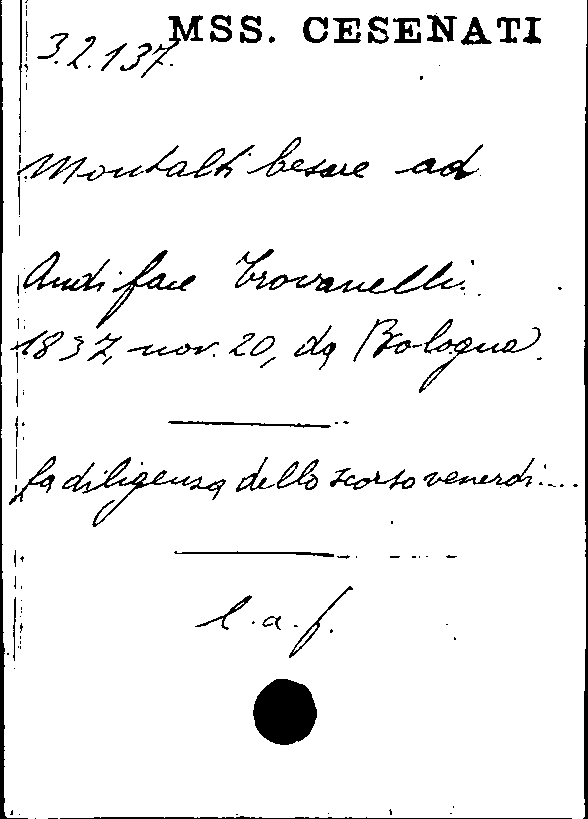 MSS. CESENATI
3.2.137.
Montalti Cesare ad
Audiface Trovanelli.
1837, nov. 20, da Bologna.
La diligenza dello scorso venerdì....
l. a. f.